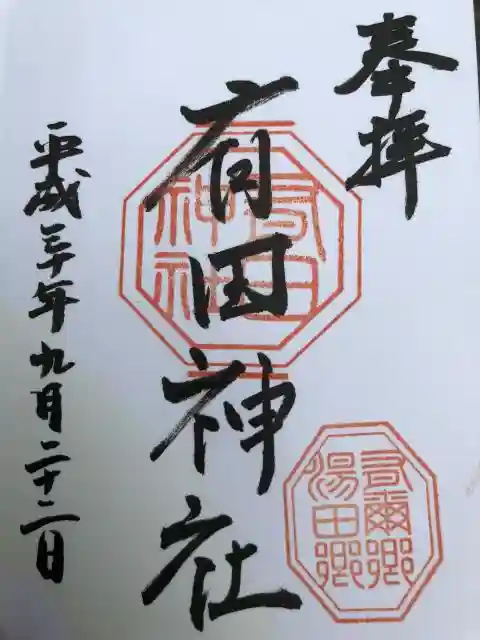 奉拝
有田神社
平成三十年九月二十二日
有田
神社
有爾郷
湯田郷